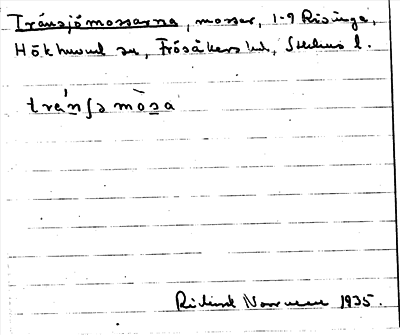 Tránsjömossarna, mossar, 1-9 Risinge,
Hökhuvud sn, Frösåkers hd, Sthlms l.
tránsʃə mòsa
Rickard Norrman 1935.